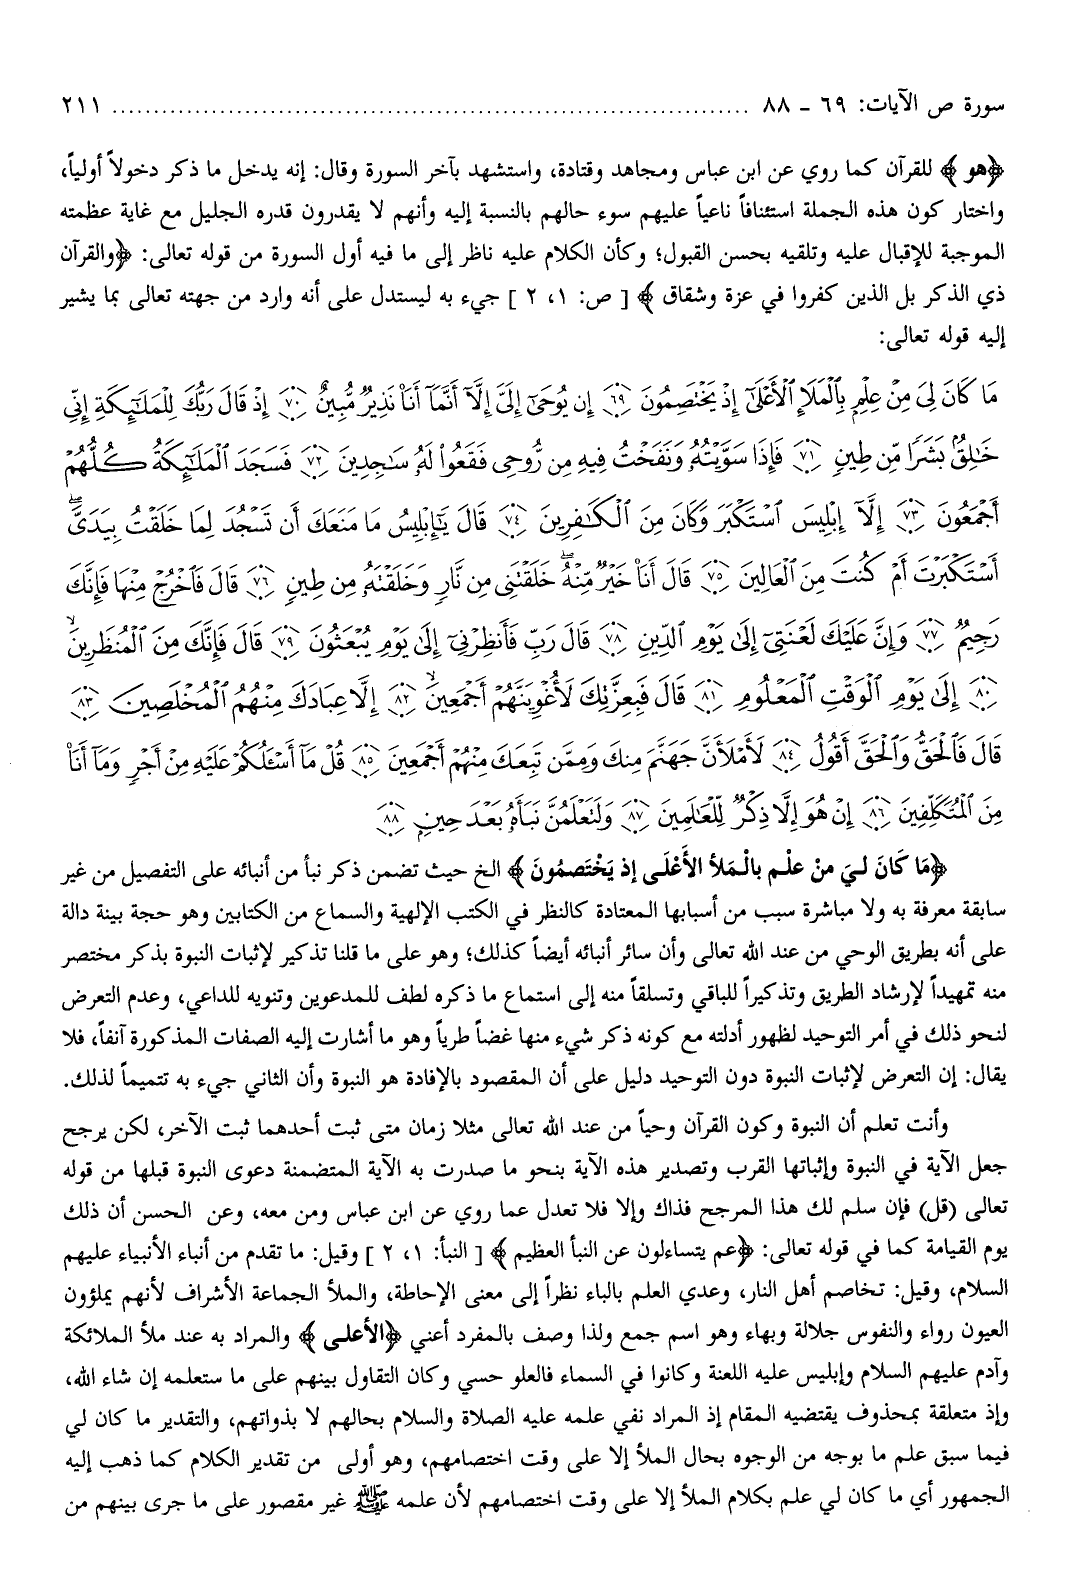 سورة ص الآيات: ٦٩ - ٨٨ ........................................................................ ٢١١
﴿هو﴾ للقرآن كما روي عن ابن عباس ومجاهد وقتادة، واستشهد بآخر السورة وقال: إنه يدخل ما ذكر دخولاً أولياً،
واختار كون هذه الجملة استئنافاً ناعياً عليهم سوء حالهم بالنسبة إليه وأنهم لا يقدرون قدره الجليل مع غاية عظمته
الموجبة للإقبال عليه وتلقيه بحسن القبول؛ وكأن الكلام عليه ناظر إلى ما فيه أول السورة من قوله تعالى: ﴿والقرآن
ذي الذكر بل الذين كفروا في عزة وشقاق﴾ [ ص: ١، ٢ ] جيء به ليستدل على أنه وارد من جهته تعالى بما يشير
إليه قوله تعالى:
مَا كَانَ لِيَ مِنْ عِلْمٍ بِالْمَلَإِ الْأَعْلَىٰ إِذْ يَخْتَصِمُونَ ﴿٦٩﴾ إِن يُوحَىٰ إِلَيَّ إِلَّا أَنَّمَا أَنَا نَذِيرٌ مُّبِينٌ ﴿٧٠﴾ إِذْ قَالَ رَبُّكَ لِلْمَلَائِكَةِ إِنِّي
خَالِقٌ بَشَرًا مِّن طِينٍ ﴿٧١﴾ فَإِذَا سَوَّيْتُهُ وَنَفَخْتُ فِيهِ مِن رُّوحِي فَقَعُوا لَهُ سَاجِدِينَ ﴿٧٢﴾ فَسَجَدَ الْمَلَائِكَةُ كُلُّهُمْ
أَجْمَعُونَ ﴿٧٣﴾ إِلَّا إِبْلِيسَ اسْتَكْبَرَ وَكَانَ مِنَ الْكَافِرِينَ ﴿٧٤﴾ قَالَ يَا إِبْلِيسُ مَا مَنَعَكَ أَن تَسْجُدَ لِمَا خَلَقْتُ بِيَدَيَّ ۖ
أَسْتَكْبَرْتَ أَمْ كُنتَ مِنَ الْعَالِينَ ﴿٧٥﴾ قَالَ أَنَا خَيْرٌ مِّنْهُ ۖ خَلَقْتَنِي مِن نَّارٍ وَخَلَقْتَهُ مِن طِينٍ ﴿٧٦﴾ قَالَ فَاخْرُجْ مِنْهَا فَإِنَّكَ
رَجِيمٌ ﴿٧٧﴾ وَإِنَّ عَلَيْكَ لَعْنَتِي إِلَىٰ يَوْمِ الدِّينِ ﴿٧٨﴾ قَالَ رَبِّ فَأَنظِرْنِي إِلَىٰ يَوْمِ يُبْعَثُونَ ﴿٧٩﴾ قَالَ فَإِنَّكَ مِنَ الْمُنظَرِينَ ۙ
﴿٨٠﴾ إِلَىٰ يَوْمِ الْوَقْتِ الْمَعْلُومِ ﴿٨١﴾ قَالَ فَبِعِزَّتِكَ لَأُغْوِيَنَّهُمْ أَجْمَعِينَ ۙ ﴿٨٢﴾ إِلَّا عِبَادَكَ مِنْهُمُ الْمُخْلَصِينَ ﴿٨٣﴾
قَالَ فَالْحَقُّ وَالْحَقَّ أَقُولُ ﴿٨٤﴾ لَأَمْلَأَنَّ جَهَنَّمَ مِنكَ وَمِمَّن تَبِعَكَ مِنْهُمْ أَجْمَعِينَ ﴿٨٥﴾ قُلْ مَا أَسْأَلُكُمْ عَلَيْهِ مِنْ أَجْرٍ وَمَا أَنَا
مِنَ الْمُتَكَلِّفِينَ ﴿٨٦﴾ إِنْ هُوَ إِلَّا ذِكْرٌ لِّلْعَالَمِينَ ﴿٨٧﴾ وَلَتَعْلَمُنَّ نَبَأَهُ بَعْدَ حِينٍ ﴿٨٨﴾
﴿مَا كَانَ لِيَ مِنْ عِلْمٍ بِالْمَلأِ الأَعْلَى إِذ يَخْتَصِمُونَ﴾ الخ حيث تضمن ذكر نبأ من أنبائه على التفصيل من غير
سابقة معرفة به ولا مباشرة سبب من أسبابها المعتادة كالنظر في الكتب الإلهية والسماع من الكتابين وهو حجة بينة دالة
على أنه بطريق الوحي من عند الله تعالى وأن سائر أنبائه أيضاً كذلك؛ وهو على ما قلنا تذكير لإثبات النبوة بذكر مختصر
منه تمهيداً لإرشاد الطريق وتذكيراً للباقي وتسلقاً منه إلى استماع ما ذكره لطف للمدعوين وتنويه للداعي، وعدم التعرض
لنحو ذلك في أمر التوحيد لظهور أدلته مع كونه ذكر شيء منها غضاً طرياً وهو ما أشارت إليه الصفات المذكورة آنفاً، فلا
يقال: إن التعرض لإثبات النبوة دون التوحيد دليل على أن المقصود بالإفادة هو النبوة وأن الثاني جيء به تتميماً لذلك.
وأنت تعلم أن النبوة وكون القرآن وحياً من عند الله تعالى مثلا زمان متى ثبت أحدهما ثبت الآخر، لكن يرجح
جعل الآية في النبوة وإثباتها القرب وتصدير هذه الآية بنحو ما صدرت به الآية المتضمنة دعوى النبوة قبلها من قوله
تعالى (قل) فإن سلم لك هذا المرجح فذاك وإلا فلا تعدل عما روي عن ابن عباس ومن معه، وعن الحسن أن ذلك
يوم القيامة كما في قوله تعالى: ﴿عم يتساءلون عن النبأ العظيم﴾ [ النبأ: ١، ٢ ] وقيل: ما تقدم من أنباء الأنبياء عليهم
السلام، وقيل: تخاصم أهل النار، وعدي العلم بالباء نظراً إلى معنى الإحاطة، والملأ الجماعة الأشراف لأنهم يملؤون
العيون رواء والنفوس جلالة وبهاء وهو اسم جمع ولذا وصف بالمفرد أعني ﴿الأعلى﴾ والمراد به عند ملأ الملائكة
وآدم عليهم السلام وإبليس عليه اللعنة وكانوا في السماء فالعلو حسي وكان التقاول بينهم على ما ستعلمه إن شاء الله،
وإذ متعلقة بمحذوف يقتضيه المقام إذ المراد نفي علمه عليه الصلاة والسلام بحالهم لا بذواتهم، والتقدير ما كان لي
فيما سبق علم ما بوجه من الوجوه بحال الملأ إلا على وقت اختصامهم، وهو أولى من تقدير الكلام كما ذهب إليه
الجمهور أي ما كان لي علم بكلام الملأ إلا على وقت اختصامهم لأن علمه ﷺ غير مقصور على ما جرى بينهم من